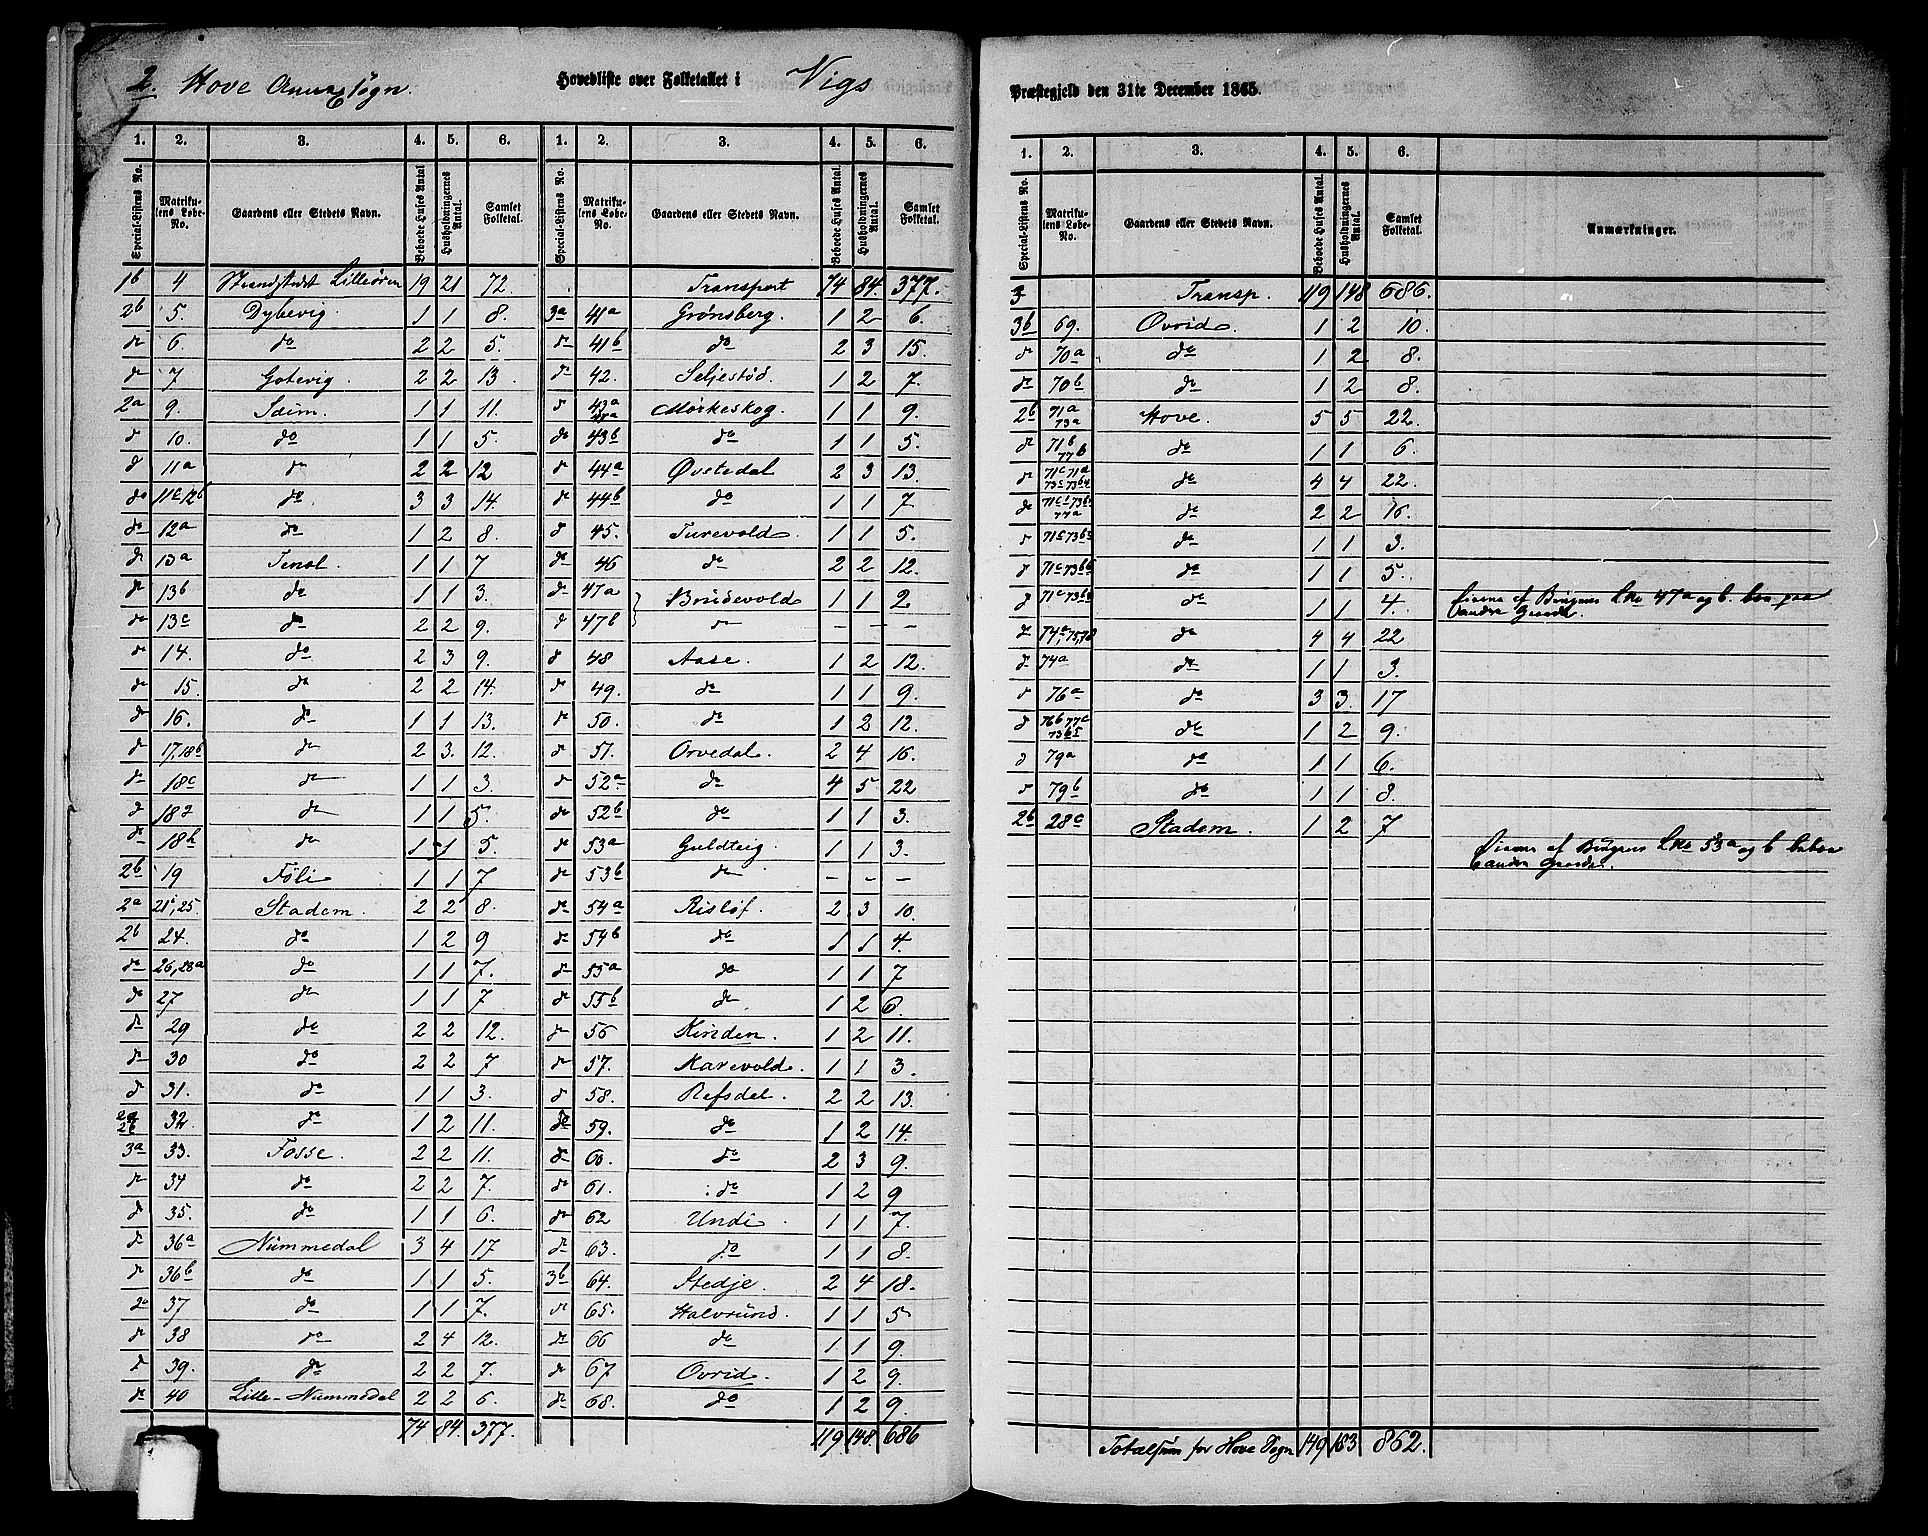 2. Hove Annexsogn.
Hovedliste over Folketallet i Vigs Præstegjeld den 31te December 1865.
1. 2. 3. 4. 5. 6. 1. 2. 3. 4. 5. 6.
Special-Listens No. Matrikulens Løbe-No. Gaardens eller Stedets Navn. Beboede Huses Antal Husholdningernes Antal. Samlet Folketal. Special-Listens No. Matrikulens Løbe-No. Gaardens eller Stedets Navn. Beboede Huses Antal. Husholdningernes Antal. Samlet Folketal.
1b 4 Strandstedet Lilleören 19 21 72.
2b 5. Dybevig. 1 1 8.
do 6. do 2 2 5.
do 7 Gotevig. 2 2 13.
2a 9. Sæim. 1 1 11.
do 10. do 1 1 5.
do 11a do 2 2 12
do 11c,12b do. 3 3 14.
do 12a do 1 2 8.
do 13a Tenol. 1 1 7
do 13b do 1 1 3.
do 13c do 2 2 9.
do 14. do 2 3 9.
do 15. do 2 2 14.
do 16. do 1 1 13.
do 17,18b do 2 3. 12.
do 18c do 1 1 3.
do 18d do 1 1 5.
do 18h do 1 1 5.
2b 19 Föli 1 1 7
2a 21,25. Stadem. 2 2 8.
2b 24. do 1 2 9
do 26,28a do 1 1 7.
do 27 do 1 1 7
do 29 do 2 2 12.
do 30 do 2 2 7
do 31. do 1 1 3.
2a 2b 32 do 1 2 11.
3a 33. Fosse. 2 2 11.
do 34 do 2 2 7.
do 35. do 1 1 6.
do 36a Nummedal 3 4 17
do 36b do 1 1 5.
do 37 do 1 1 7.
do 38 do 2 4 12.
do 39. do 2 2 7.
do 40 Lille-Nummedal 2 2 6.
74 84. 377.
Transport 74 84. 377.
3a 41a Grönsberg. 1 2 6.
do 41b do 2 3 15.
do 42. Seljestöd. 1 2 7.
do 43a Mörkeskog. 1 1 9.
do 43b do 1 1 5.
do 44a Øvstedal 2 3 13.
do 44b do 1 1 7
do 45. Turevold. 1 1 5.
do 46 do 2 2 12.
do 47a Bruidevold 1 1 2
do 47b do - - -
do 48 Aase. 1 2 12.
do 49. do 1 1 9.
do 50. do 1 2 12.
do 51. Orvedal. 2 4 16.
do 52a do 4 5 22
do 52b do 1 1 3.
do 53a Guldteig. 1 1 3.
do 53b do - - -
do 54a Rislöf. 2 3 10.
do 54b do 1 1 4.
do 55a do 1 1 7
do 55b do 1 2 6.
do 56 Kinden. 1 2 11.
do 57. Karevold. 1 1 3.
do 58. Refsdal. 2 2 13.
do 59. do 1 2 14.
do 60. do 2 3 9.
do 61. do 1 2 9
do 62 Undi. 1 1 7.
do 63. do 1 1 8.
3b 64. Stedje 2 4 18.
do 65. Halvrund. 1 1 5
do 66 do 1 1 9.
do 67 Ovrid. 1 2 9.
do 68. do 1 2 9.
119 148. 686
1. 2. 3. 4. 5. 6.
Special-Listens No Matrikulens Løbe-No. Gaardens eller Stedets Navn. Beboede Huses Antal. Husholdningernes Antal. Samlet Folketal. Anmærkninger.
3 Transp. 119 148 686.
3b 69. Øvrid. 1 2 10.
do 70a do 1 2 8.
do 70b do 1 2 8.
2b 71a 73a Hove. 5 5 22.
do 71b 77b do 1 1 6.
do 71c 71a 73c 73b4 do 4 4 22.
do 71c1 73b 77a do 2 2 16.
do 71c 73b do 1 1 3.
do 71c 73b do 1 1 5.
do 71c 73b do 1 1 4.
Eierne af Brugene Lno 47a og b. boe paa andre Gaarde.
do 74,75,78 do 4 4 22
do 74a do 1 1 3.
do 76a do 3 3. 17
do 76b 77c 73b5 do 1 2 9.
do 79a do 1 1 6.
do 79b do 1 1 8.
2b 28c Stadem. 1 2 7
Eierne af Brugene Lno 53a og b beboe andre Gaarde.
Totalsum for Hove Sogn 149 183 862.